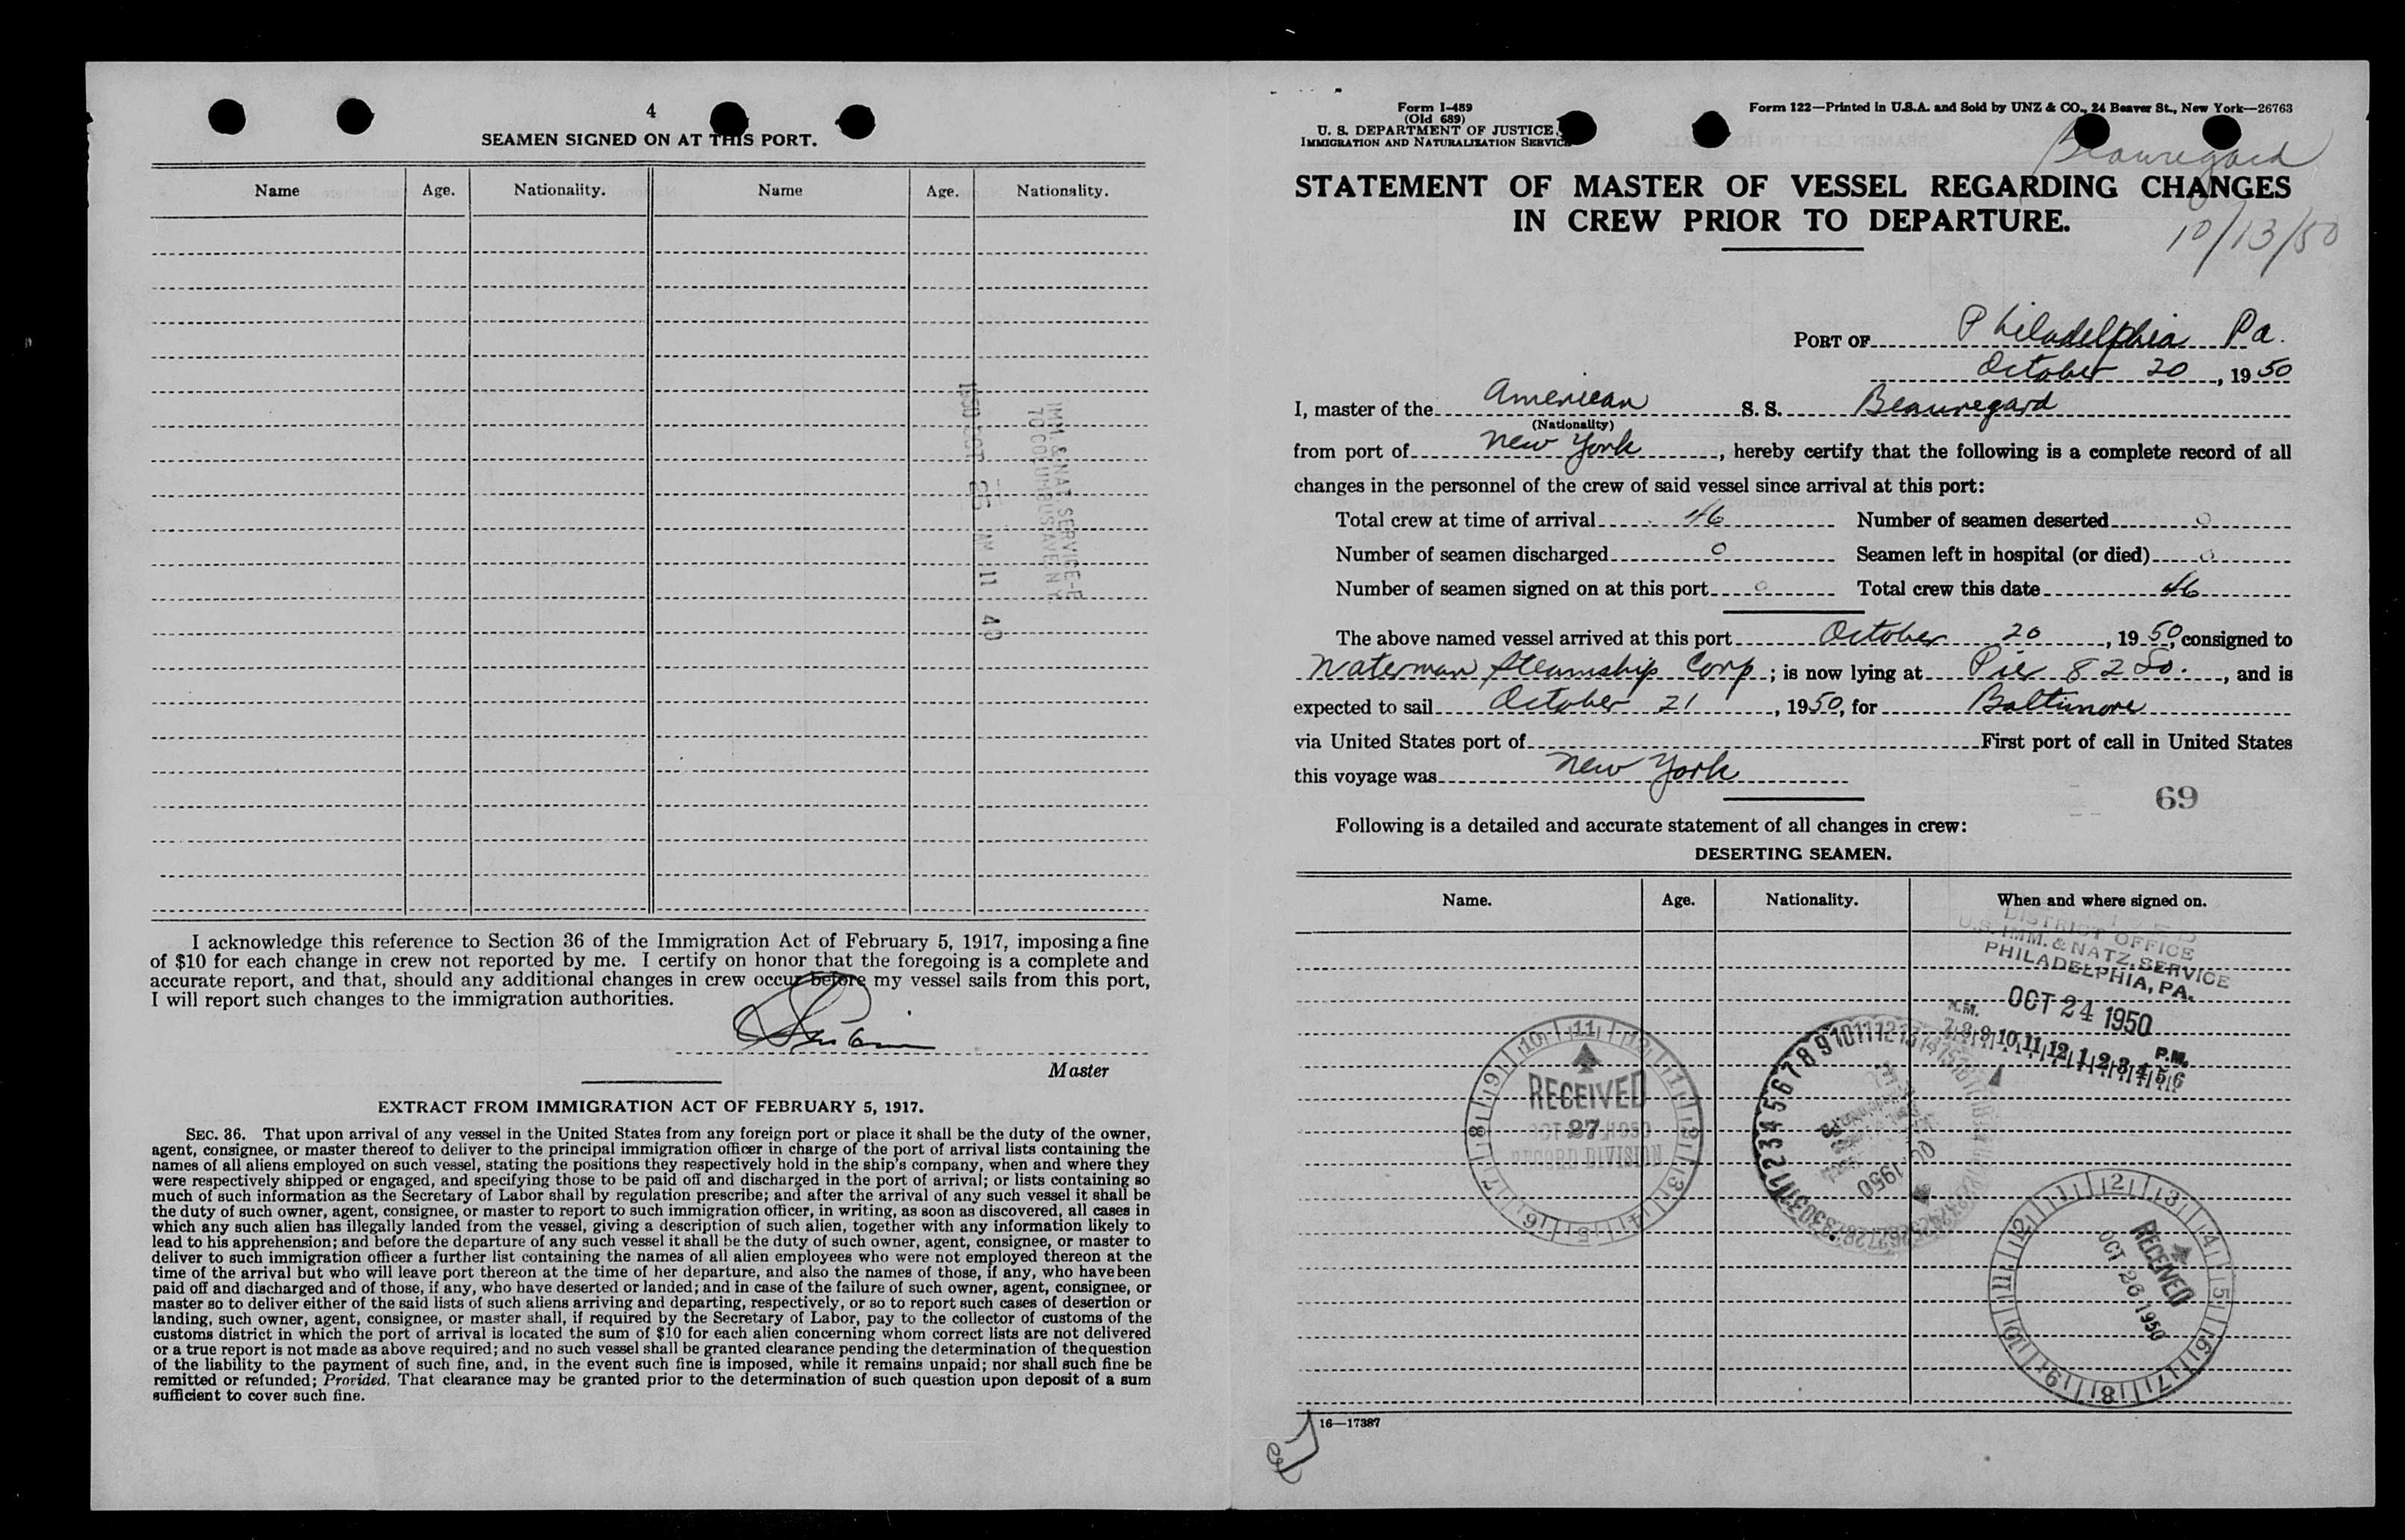 4
SEAMEN SIGNED ON AT THIS PORT.
Name Age. Nationality. Name Age. Nationality.
IMM. & NAT. SERVICE
70 COLUMBUS AVE N.Y.
1950 OCT 26 AM 11 40
I acknowledge this reference to Section 36 of the Immigration Act of February 5, 1917, imposing a fine
of $10 for each change in crew not reported by me. I certify on honor that the foregoing is a complete and
accurate report, and that, should any additional changes in crew occur before my vessel sails from this port,
I will report such changes to the immigration authorities.
Master
EXTRACT FROM IMMIGRATION ACT OF FEBRUARY 5, 1917.
SEC. 36. That upon arrival of any vessel in the United States from any foreign port or place it shall be the duty of the owner,
agent, consignee, or master thereof to deliver to the principal immigration officer in charge of the port of arrival lists containing the
names of all aliens employed on such vessel, stating the positions they respectively hold in the ship's company, when and where they
were respectively shipped or engaged, and specifying those to be paid off and discharged in the port of arrival; or lists containing so
much of such information as the Secretary of Labor shall by regulation prescribe; and after the arrival of any such vessel it shall be
the duty of such owner, agent, consignee, or master to report to such immigration officer, in writing, as soon as discovered, all cases in
which any such alien has illegally landed from the vessel, giving a description of such alien, together with any information likely to
lead to his apprehension; and before the departure of any such vessel it shall be the duty of such owner, agent, consignee, or master to
deliver to such immigration officer a further list containing the names of all alien employees who were not employed thereon at the
time of the arrival but who will leave port thereon at the time of her departure, and also the names of those, if any, who have been
paid off and discharged and of those, if any, who have deserted or landed; and in case of the failure of such owner, agent, consignee, or
master so to deliver either of the said lists of such aliens arriving and departing, respectively, or so to report such cases of desertion or
landing, such owner, agent, consignee, or master shall, if required by the Secretary of Labor, pay to the collector of customs of the
customs district in which the port of arrival is located the sum of $10 for each alien concerning whom correct lists are not delivered
or a true report is not made as above required; and no such vessel shall be granted clearance pending the determination of the question
of the liability to the payment of such fine, and, in the event such fine is imposed, while it remains unpaid; nor shall such fine be
remitted or refunded; Provided, That clearance may be granted prior to the determination of such question upon deposit of a sum
sufficient to cover such fine.
Form I-489
(Old 689)
U. S. DEPARTMENT OF JUSTICE
IMMIGRATION AND NATURALIZATION SERVICE
Form 122—Printed in U.S.A. and Sold by UNZ & CO., 24 Beaver St., New York—26763
Beauregard
10/13/50
STATEMENT OF MASTER OF VESSEL REGARDING CHANGES
IN CREW PRIOR TO DEPARTURE.
PORT OF Philadelphia Pa.
October 20, 1950
I, master of the American S. S. Beauregard
(Nationality)
from port of New York, hereby certify that the following is a complete record of all
changes in the personnel of the crew of said vessel since arrival at this port:
Total crew at time of arrival 46 Number of seamen deserted 0
Number of seamen discharged 0 Seamen left in hospital (or died) 0
Number of seamen signed on at this port 0 Total crew this date 46
The above named vessel arrived at this port October 20, 1950, consigned to
Waterman Steamship Corp; is now lying at Pier 82 So., and is
expected to sail October 21, 1950, for Baltimore
via United States port of First port of call in United States
this voyage was New York
69
Following is a detailed and accurate statement of all changes in crew:
DESERTING SEAMEN.
Name. Age. Nationality. When and where signed on.
DISTRICT OFFICE
U.S. IMM. & NATZ. SERVICE
PHILADELPHIA, PA.
OCT 24 1950
A.M. 7 8 9 10 11 12 1 2 3 4 5 6 P.M.
RECEIVED
27
RECORD DIVISION
1950
RECEIVED
OCT 26 1950
16—17387